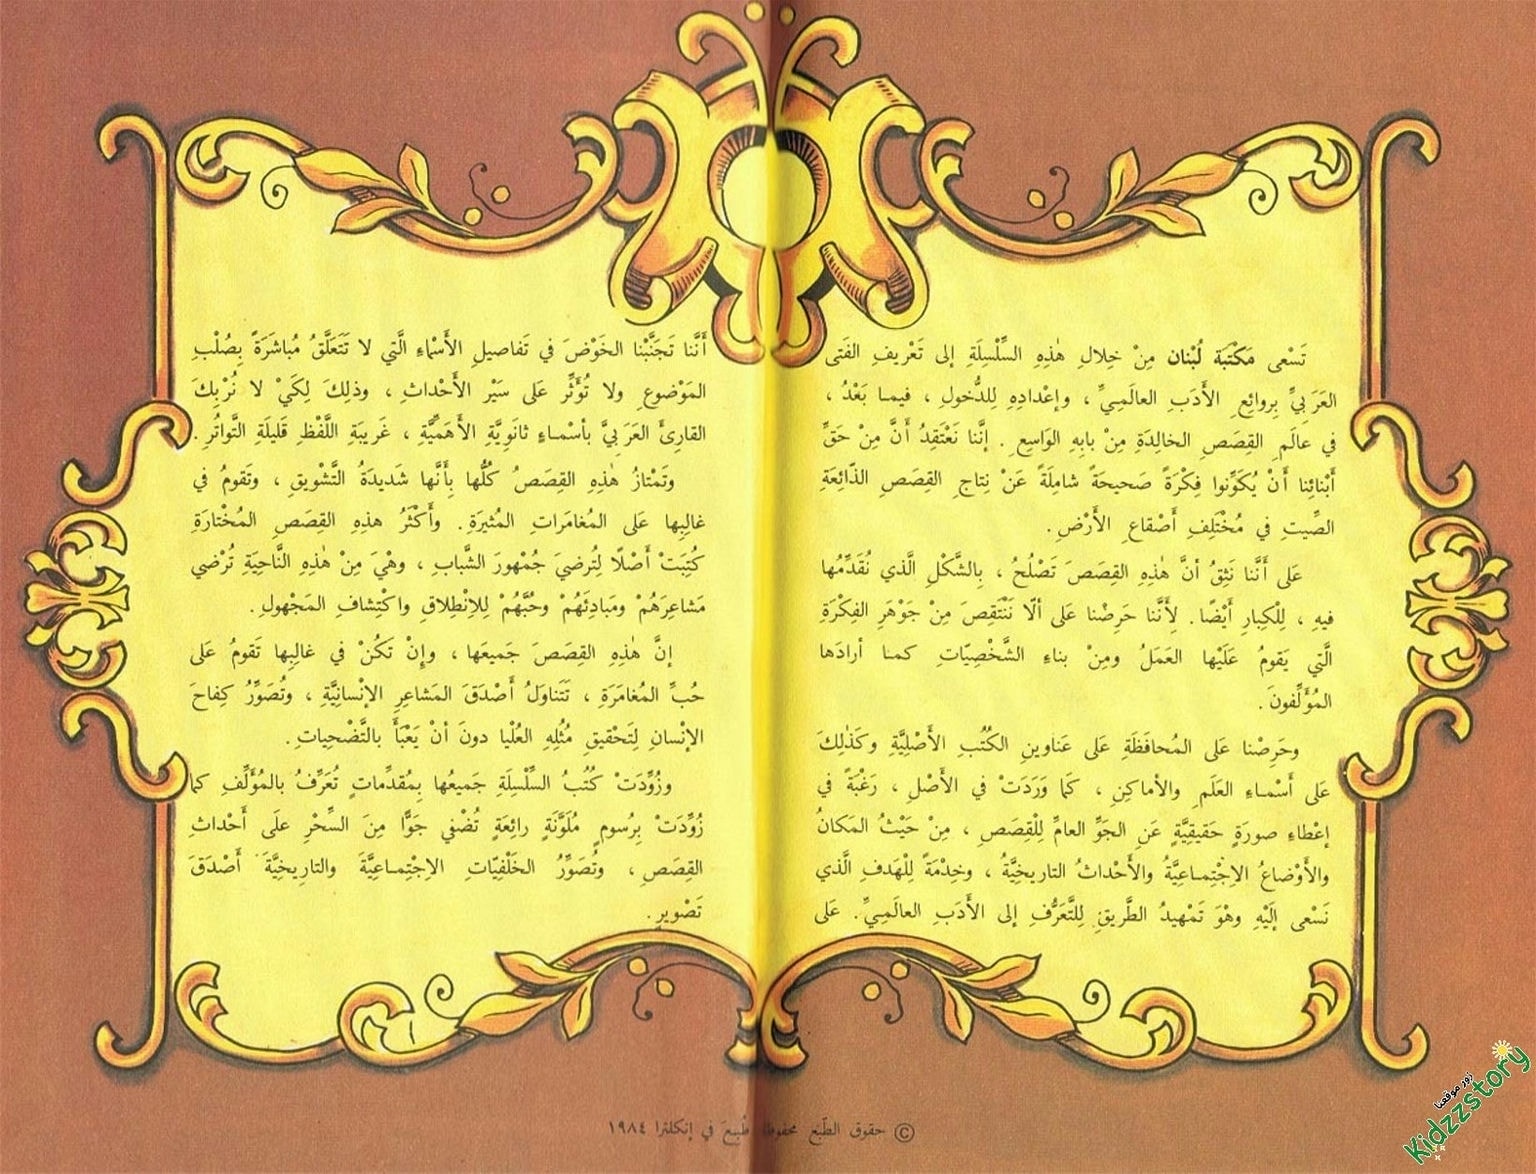 تَسْعى مَكْتَبَة لُبْنان مِنْ خِلالِ هٰذِهِ السِّلْسِلَةِ إلى تَعْريفِ الفَتى
العَرَبِيِّ بِروائِعِ الأَدَبِ العالَمِيِّ ، وإعْدادِهِ لِلدُّخولِ ، فيما بَعْدُ ،
في عالَمِ القِصَصِ الخالِدَةِ مِنْ بابِهِ الوَاسِعِ . إنَّنا نَعْتَقِدُ أَنَّ مِنْ حَقِّ
أَبْنائِنا أَنْ يُكَوِّنوا فِكْرَةً صَحيحَةً شامِلَةً عَنْ نِتاجِ القِصَصِ الذّائِعَةِ
الصِّيتِ في مُخْتَلِفِ أَصْقاعِ الأَرْضِ.
عَلى أَنَّنا نَثِقُ أنَّ هٰذِهِ القِصَصَ تَصْلُحُ ، بِالشَّكْلِ الَّذي نُقَدِّمُها
فيهِ ، لِلْكِبارِ أَيْضًا. لِأَنَّنا حَرِصْنا عَلى ألّا نَنْتَقِصَ مِنْ جَوْهَرِ الفِكْرَةِ
الَّتي يَقومُ عَلَيْها العَمَلُ ومِنْ بناءِ الشَّخْصِيّاتِ كمـا أرادَها
المُؤَلِّفونَ .
وحَرِصْنا عَلى المُحافَظَةِ عَلى عَناوينِ الكُتُبِ الأَصْلِيَّةِ وكَذٰلِكَ
عَلى أَسْماءِ العَلَمِ والأماكِنِ ، كَما وَرَدَتْ في الأَصْلِ ، رَغْبَةً في
إعْطاءِ صورَةٍ حَقيقِيَّةٍ عَنِ الجَوِّ العامِّ لِلْقِصَصِ ، مِنْ حَيْثُ المَكانُ
والأَوْضاعُ الاِجْتِماعِيَّةُ والأَحْداثُ التاريخِيَّةُ ، وخِدْمَةً لِلْهَدفِ الَّذي
نَسْعى إلَيْهِ وهْوَ تَمْهيدُ الطَّريقِ لِلتَّعَرُّفِ إلى الأَدَبِ العالَمِيِّ. عَلى
أَنَّنا تَجَنَّبْنا الخَوْضَ في تَفاصيلِ الأَسْماءِ الَّتي لا تَتَعَلَّقُ مُباشَرَةً بِصُلْبِ
المَوْضوعِ ولا تُؤَثِّرُ عَلى سَيْرِ الأَحْداثِ ، وذلِكَ لِكَيْ لا نُرْبِكَ
القارِئَ العَرَبِيَّ بأسْماءٍ ثانَوِيَّةِ الأَهَمِّيَّةِ ، غَريبَةِ اللَّفْظِ قَليلَةِ التَّواتُرِ.
وتَمْتازُ هٰذِهِ القِصَصُ كُلُّها بِأَنَّها شَديدَةُ التَّشْويقِ ، وتَقومُ في
غالِبِها عَلى المُغامَراتِ المُثيرَةِ. وأَكْثَرُ هذِهِ القِصَصِ المُخْتارَةِ
كُتِبَتْ أَصْلًا لِتُرضيَ جُمْهورَ الشَّبابِ ، وهْيَ مِنْ هٰذِهِ النَّاحِيَةِ تُرْضي
مَشاعِرَهُمْ ومَبادِئَهُمْ وحُبَّهُمْ لِلاِنْطِلاقِ واكْتِشافِ المَجْهولِ.
إنَّ هٰذِهِ القِصَصَ جَميعَها ، وإنْ تَكُنْ في غالِبِها تَقومُ عَلى
حُبِّ المُغامَرَةِ ، تَتَناوَلُ أَصْدَقَ المَشاعِرِ الإنْسانِيَّةِ ، وتُصَوِّرُ كِفاحَ
الإنْسانِ لِتَحْقيقِ مُثُلِهِ العُلْيا دونَ أنْ يَعْبَأَ بالتَّضْحِياتِ.
وزُوِّدَتْ كُتُبُ السِّلْسِلَةِ جَميعُها بِمُقدِّماتٍ تُعَرِّفُ بالمُؤَلِّفِ كما
زُوِّدَتْ بِرُسومٍ مُلَوَّنَةٍ رائِعَةٍ تُضْفي جَوًّا مِنَ السِّحْرِ عَلى أَحْداثِ
القِصَصِ ، وتُصَوِّرُ الخَلْفِيّاتِ الاِجْتِماعِيَّةَ والتاريخِيَّةَ أَصْدَقَ
تَصْويرٍ.
© حقوق الطّبع محفوظة طُبِعَ في إنكلترا ١٩٨٤
زور موقعنا
Kidzzstory